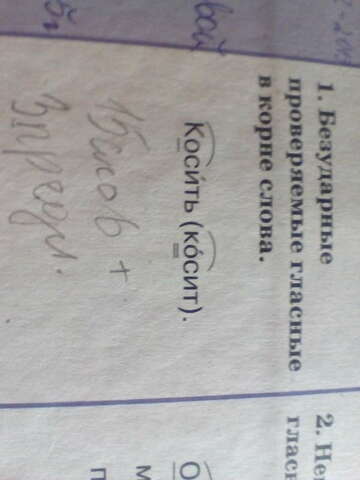 1. Безударные
проверяемые гласные
в корне слова.
Коси́ть (ко́сит).
15 слов +
3 предл.
вой
2. Не
глас
О
м
п